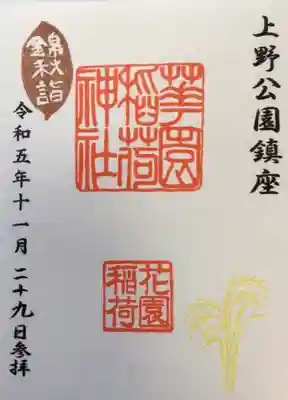 上野公園鎮座
華園
稲荷
神社
花園
稲荷
錦秋詣
令和五年十一月二十九日参拝